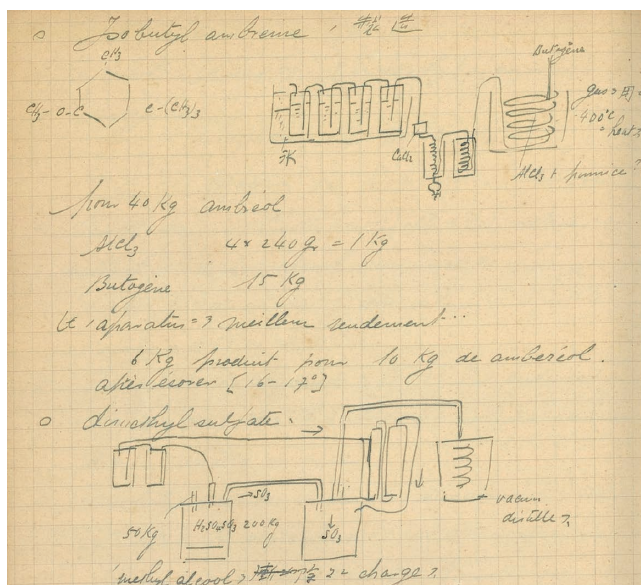 Isobutyl ambreine
CH3
CH3-O-C C-(CH3)3
Butogène
400°C
heat
CaCl2
AlCl3 + pumice ?
pour 40 Kg ambréol
AlCl3 4 x 240 gr = 1 Kg
Butogène 15 Kg
apparatus = meilleur rendement...
6 Kg produit pour 10 Kg de ambéréol.
après écorer [16-17°]
dimethyl sulfate.
→ SO3
50 Kg H2SO4 SO3 200 Kg
↓ SO3
vacuum
distille
methyl alcool charge